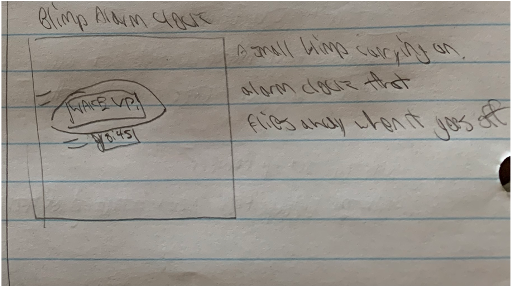 Blimp Alarm clock
A small blimp carrying an
alarm clock that
flies away when it goes off
WAKE UP!